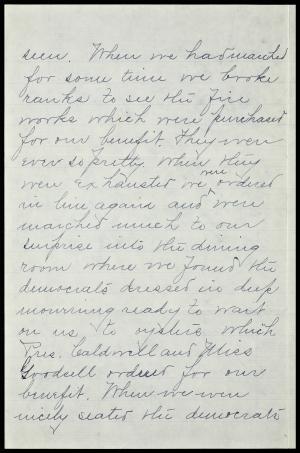 seen. When we had marched
for some time we broke
ranks to see the fire
works which were purchased
for our benefit. They were
ever so pretty. When they
were exhausted we were ordered
in line again and were
marched much to our
surprise into the dining
room where we found the
democrats dressed in deep
mourning ready to wait
on us to oysters which
Pres. Caldwell and Miss
Goodsell ordered for our
benefit. When we were
nicely seated the democrats